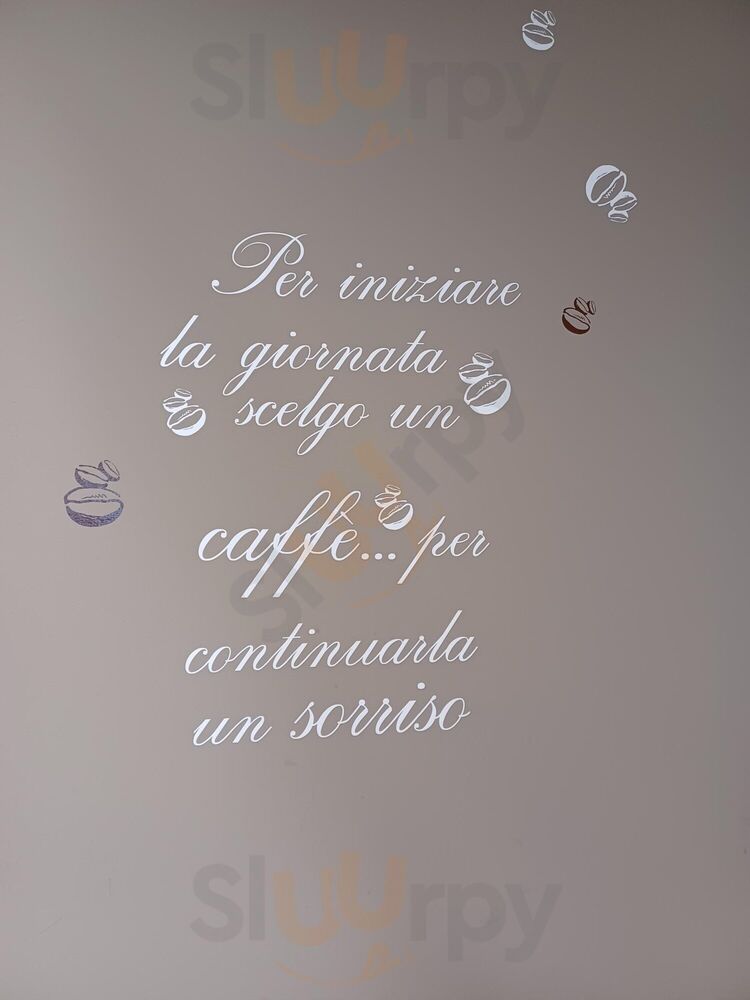 Sluurpy
Per iniziare
la giornata
scelgo un
caffè... per
Sluurpy
continuarla
un sorriso
Sluurpy